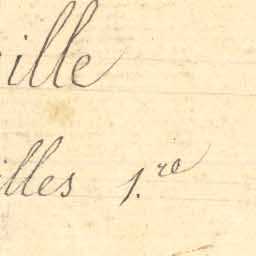 ille
illes 1.re